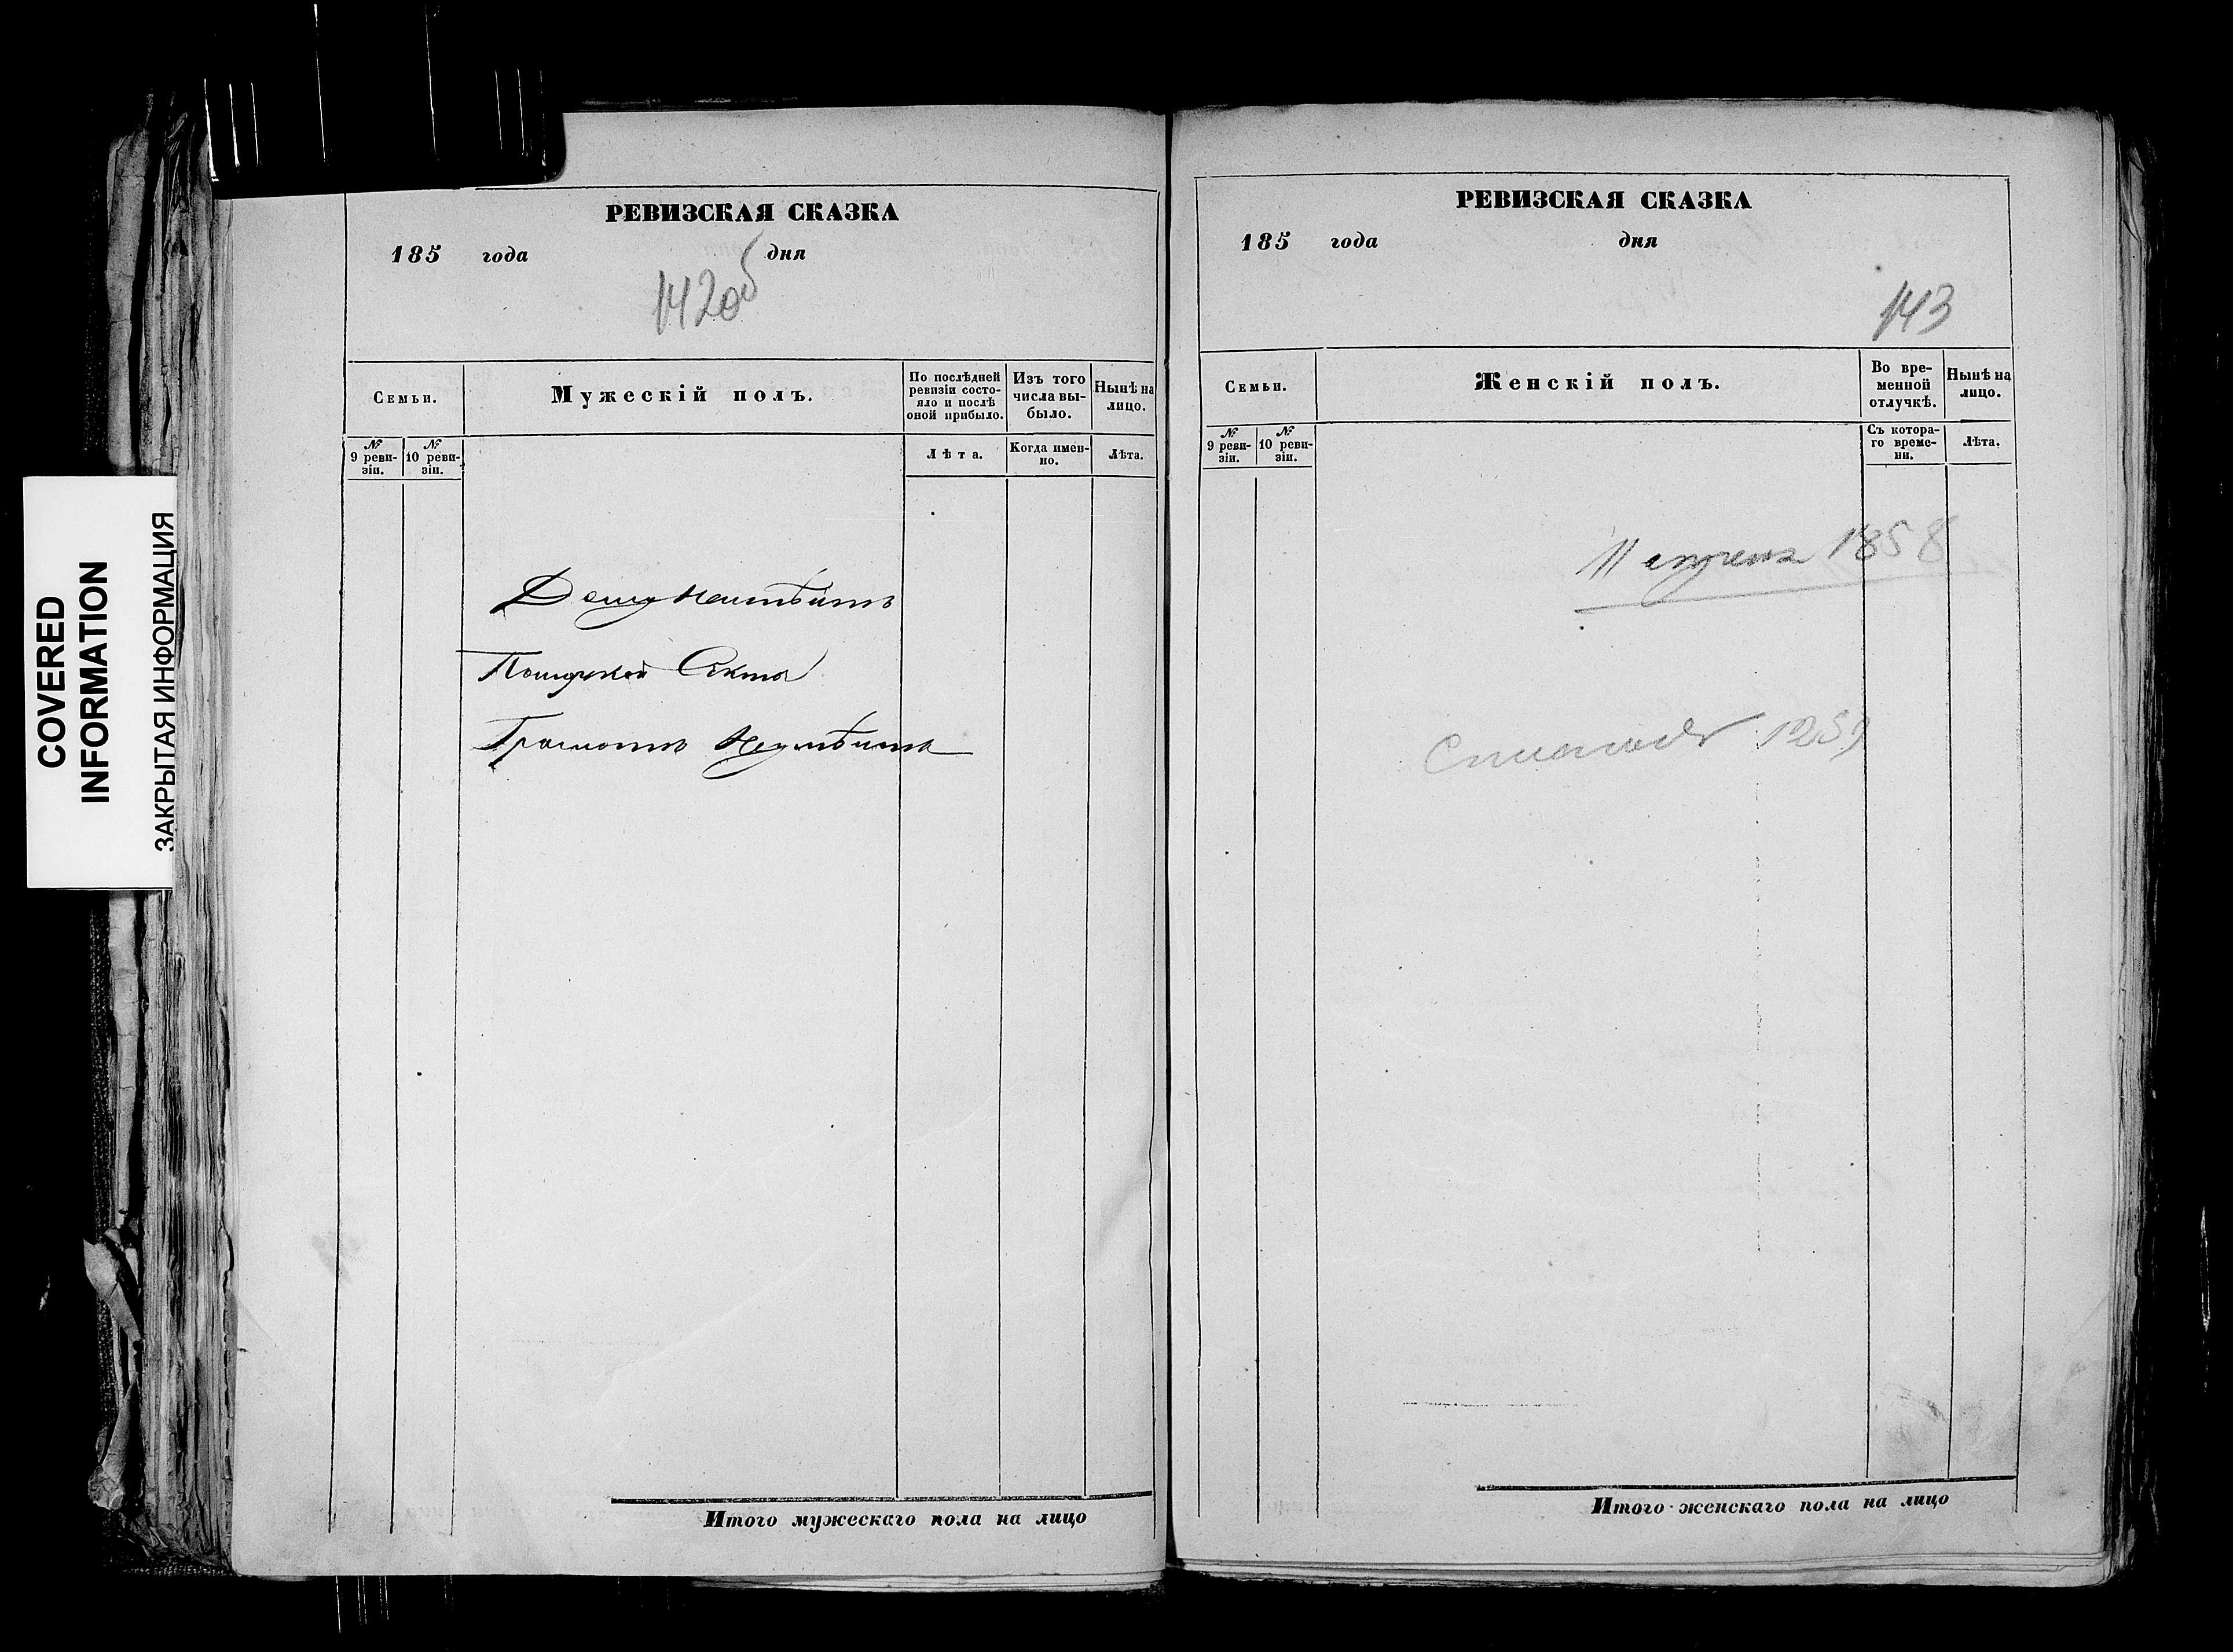 COVERED
INFORMATION
ЗАКРЫТАЯ ИНФОРМАЦИЯ
РЕВИЗСКАЯ СКАЗКА
185 года дня
142об
Семьи.
Мужескій полъ.
По послѣдней
ревизіи состо-
яло и послѣ
оной прибыло.
Изъ того
числа вы-
было.
Нынѣ на
лицо.
№
9 реви-
зіи.
№
10 реви-
зіи.
Лѣта.
Когда имен-
но.
Лѣта.
Секты
Грамотъ
Итого мужескаго пола на лицо
РЕВИЗСКАЯ СКАЗКА
185 года дня
143
Семьи.
Женскій полъ.
Во вре-
менной
отлучкѣ.
Нынѣ на
лицо.
№
9 реви-
зіи.
№
10 реви-
зіи.
Съ котора-
го време-
ни.
Лѣта.
11 апреля 1858
Итого женскаго пола на лицо